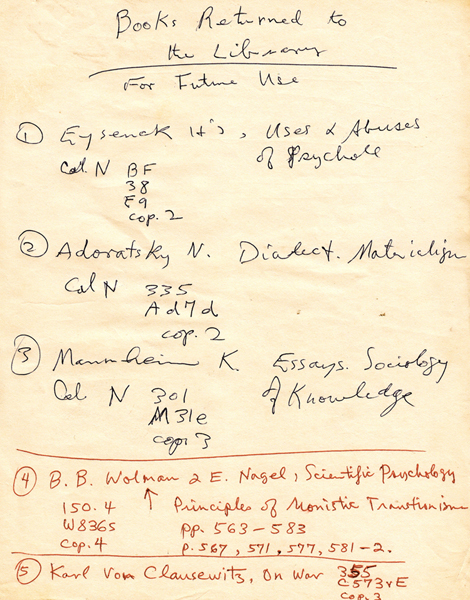 Books Returned to
the Library
For Future Use
① Eysenck H's, Uses & Abuses
of Psychole
Cal N BF
38
E9
cop. 2
② Adoratsky N. Dialect. Materialism
Cal N 335
Ad7d
cop. 2
③ Mannheim K. Essays. Sociology
of Knowledge
Cal. N 301
M31e
cop. 3
④ B. B. Wolman & E. Nagel, Scientific Psychology
150.4 ↑ Principles of Monistic Transitionism
W8365 pp. 563-583
Cop. 4 p. 567, 571, 577, 581-2.
⑤ Karl Von Clausewitz, On War 355
C573vE
cop. 3